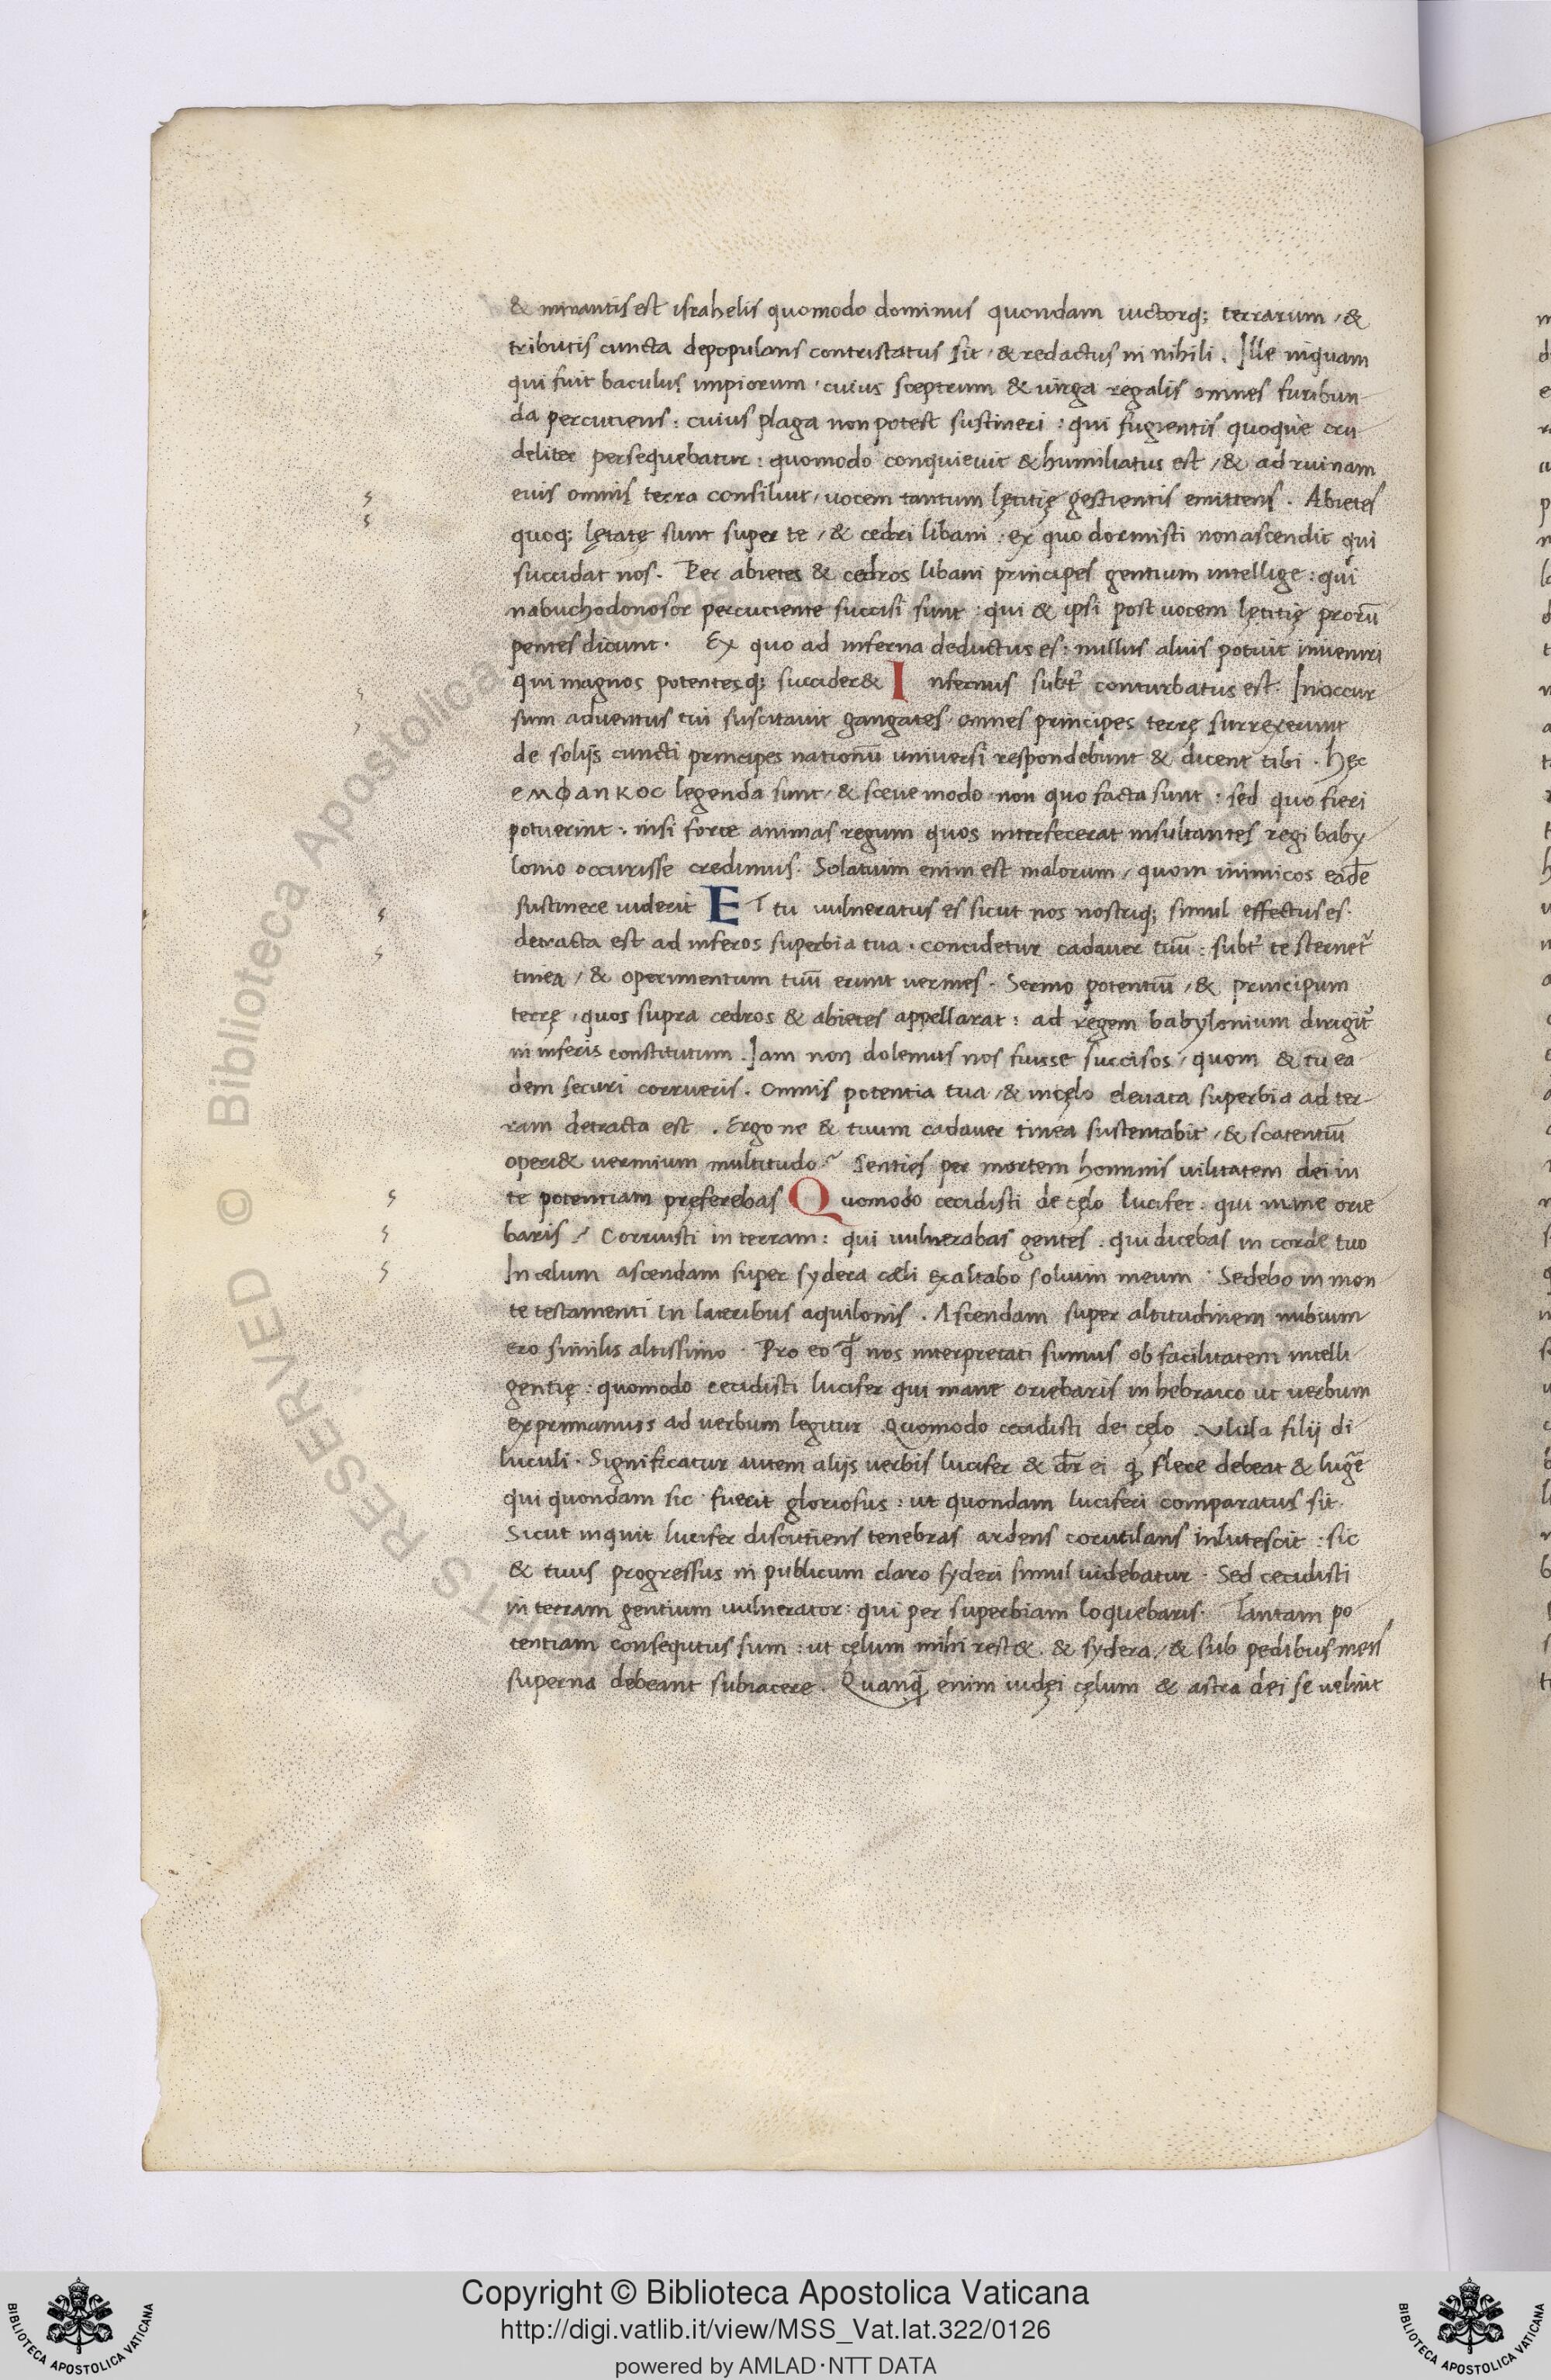 & mirantis est israhelis quomodo dominus quondam uictorq; terrarum / &
tributis cuncta depopulans contristatus sit / & redactus in nihili . Ille inquam
qui fuit baculus impiorum . cuius sceptrum & uirga regalis omnes furibun-
da percutiens : cuius plaga non potest sustineri : qui fugientis quoque cru-
deliter persequebatur : quomodo conquieuit & humiliatus est / & ad ruinam
euis omnis terra consiluit / uocem tantum lętitię gestientis emittens . Abietes
quoq; lętatę sunt super te / & cedri libani . ex quo dormisti non ascendit qui
succidat nos . Per abietes & cedros libani principes gentium intellige : qui
nabuchodonosor percutiente succisi sunt : qui & ipsi post uocem lętitię prorū
pentes dicunt . Ex quo ad inferna deductus es : nullus aluis potuit inueniri
qui magnos potentesq; succider& Infernus subt᷑ conturbatus est . In occur
sum aduentus tui suscitauit gangates . omnes principes terrę surrexerunt
de solijs cuncti principes nationū uniuersi respondebunt & dicent tibi . hęc
εμφαnκος legenda sunt / & sceue modo non quo facta sunt : sed quo fieri
potuerint . nisi forte animas regum quos interfecerat insultantes regi baby-
lonio occurisse credimus . Solatium enim est malorum / quom inimicos eadē
sustinere uiderit ET tu uulneratus es sicut nos nostriq; simul effectus es .
detracta est ad inferos superbia tua . concidetur cadauer tuū : subt᷑ te sternet᷑
tinea / & operimentum tuū erunt uermes . Sermo potentiū / & principum
terrę / quos supra cedros & abietes appellarat : ad regem babylonium dirigit᷑
in inferis constitutum . Iam non dolemus nos fuisse succisos / quom & tu ea-
dem securi corrueris . omnis potentia tua / & in cęlo eleuata superbia ad ter-
ram detracta est . Ergo ne & tuum cadauer tinea sustentabit / & scatentiū
operi& uermium multitudo ? Senties per mortem hominis uilitatem dei in
te potentiam pręferebas Quomodo cecidisti de cęlo lucifer : qui mane orie
baris ? Corruisti in terram : qui uulnerabas gentes . qui dicebas in corde tuo
In cælum ascendam super sydera cæli exaltabo solium meum . Sedebo in mon
te testamenti in lateribus aquilonis . Ascendam super altitudinem nubium
ero similis altissimo . Pro eo q̄ nos interpretati sumus ob facilitatem intelli
gentię : quomodo cecidisti lucifer qui mane oriebaris in hebraico ut uerbum
exprimamus ad uerbum legitur . Quomodo cecidisti de cęlo . Vlula filij di
luculi . Significatur autem alijs uerbis lucifer & dr̄ ei q flere debeat & lugē
qui quondam sic fuerit gloriosus : ut quondam luciferi comparatus sit .
Sicut inquit lucifer discutiens tenebras ardens corutilans inlutescit : sic
& tuus progressus in publicum claro syderi simul uidebatur . Sed cecidisti
in terram gentium uulnerator : qui per superbiam loquebaris . Tantam po
tentiam consequtus sum : ut cęlum mihi rest& . & sydera / & sub pedibus meis
superna debeant subiacere . Quanq̄ enim iudęi cęlum & astra dei se uelint
© Biblioteca Apostolica
RESERVED
Copyright © Biblioteca Apostolica Vaticana
http://digi.vatlib.it/view/MSS_Vat.lat.322/0126
powered by AMLAD·NTT DATA
BIBLIOTECA APOSTOLICA VATICANA
BIBLIOTECA APOSTOLICA VATICANA